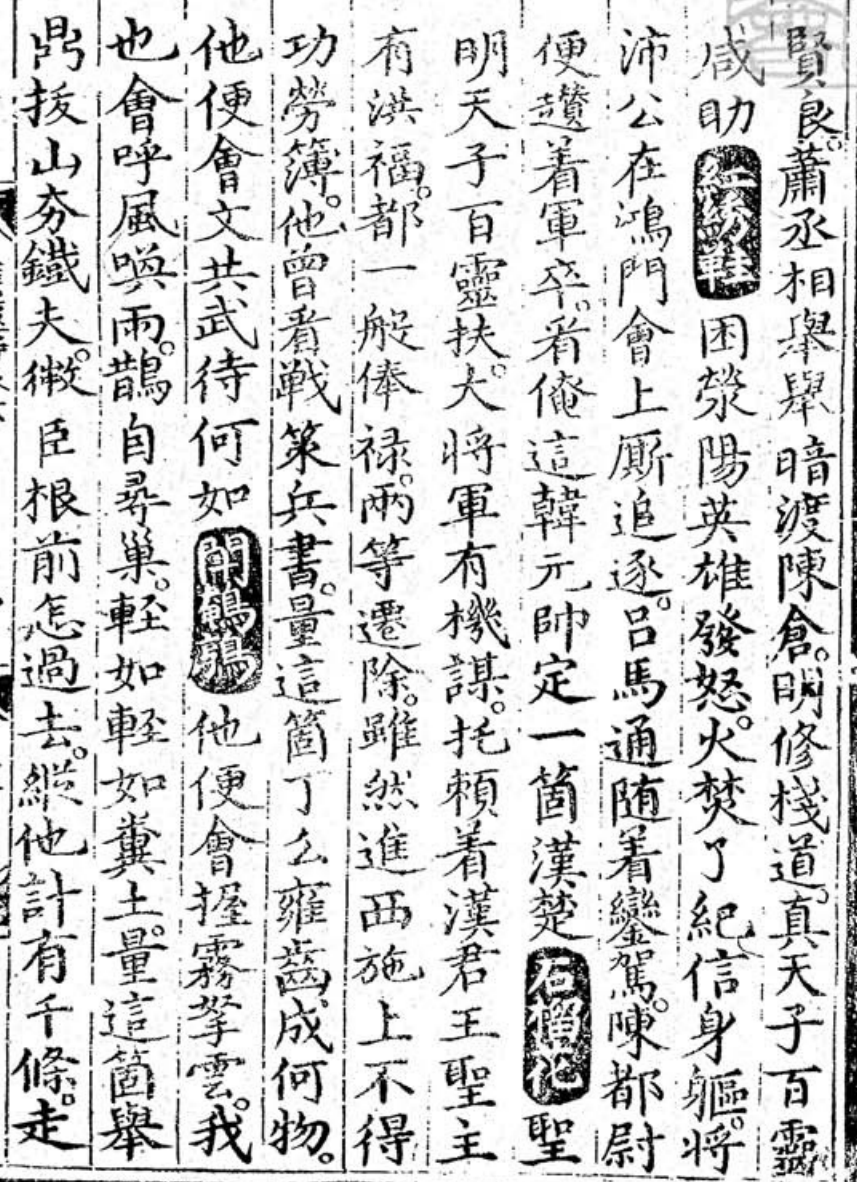 賢良。蕭丞相舉舉暗渡陳倉。明修棧道。真天子百靈
咸助紅芍藥困滎陽英雄發怒。火焚了紀信身軀。將
沛公在鴻門會上厮追逐。吕馬通随着鑾駕。陳都尉
便趲着軍卒。看俺這韓元帥定一箇漢楚石榴花聖
明天子百靈扶。大將軍有機謀。托頼着漢君王聖主
有洪福。都一般俸禄。兩等遷除。雖然進西施上不得
功勞簿。他曾看戦策兵書。量這箇丁公雍齒。成何物。
他便會文共武待何如鬭鵪鶉他便會握霧拏雲。我
也會呼風喚雨。鵲自尋巢。軽如軽如糞土。量這箇舉
鼎拔山夯鐵夫。微臣根前怎過去。縱他計有千條。走